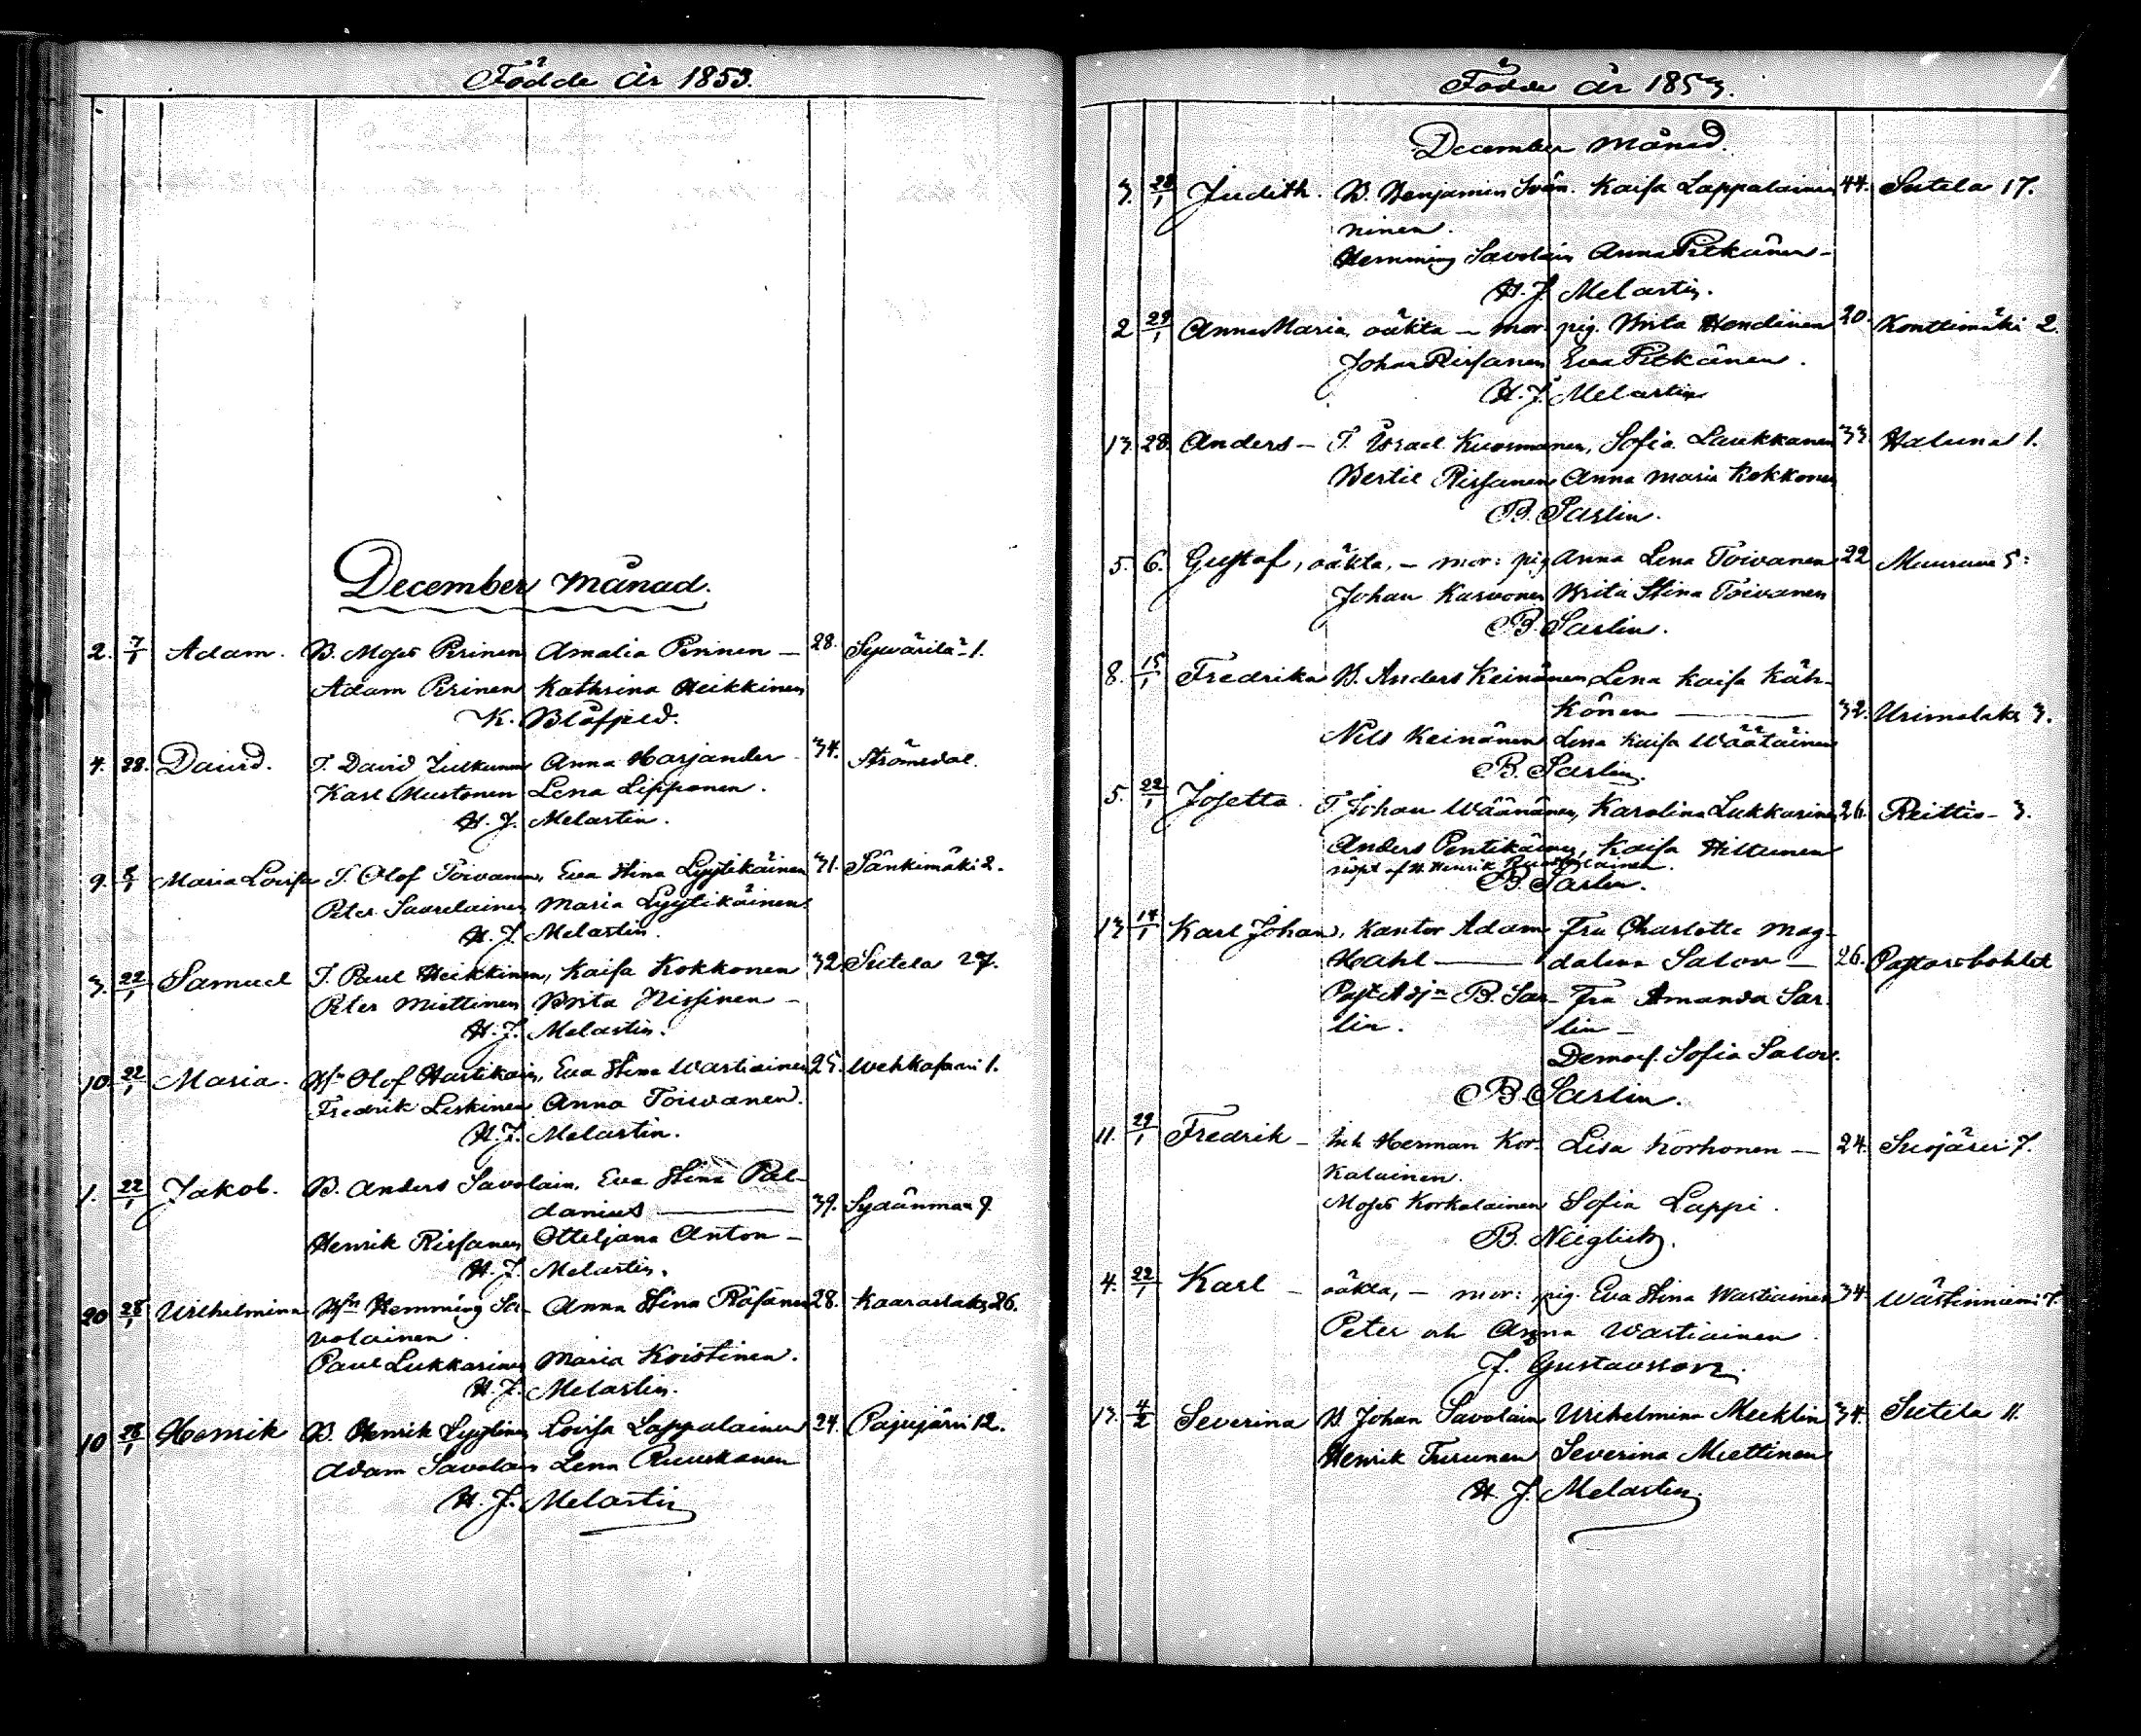 Födde År 1853.
December Månad.
2. 7/1 Adam. B. Moses Pirinen Amalia Pirinen — 28. Sywärilä 1.
Adam Pirinen Kathrina Heikkinen
K. Blåfjeld.
4. 28. David. T. David Julkunen Anna Harjander 34. Strömsdal.
Karl Mustonen Lena Lipponen.
H. J. Melartin.
9. 8/1 Maria Lovisa T. Olof Toivanen, Eva Stina Lyytikäinen 31. Sänkimäki 2.
Peter Saarelainen Maria Lyytikäinen.
H. J. Melartin.
3. 22/1 Samuel T. Paul Heikkinen, Kaisa Kokkonen 32. Sutela 27.
Peter Miettinen Brita Nissinen —
H. J. Melartin.
10. 22/1 Maria. Hsn Olof Hartikain, Eva Stina Wartiainen 25. Wehkasari 1.
Fredrik Leskinen Anna Toivanen.
H. J. Melartin.
1. 22/1 Jakob. B. Anders Savolain, Eva Stina Pal-
danius — 39. Sydänmaa 9.
Henrik Rissanen Otteljana Anton —
H. J. Melartin.
20 28/1 Wilhelmina Hsn Hemming Sa- Anna Stina Räsänen 28. Kaaraslaks 26.
volainen.
Paul Lukkarinen Maria Koistinen.
H. J. Melartin.
10 28/1 Henrik B. Henrik Lyytinen Lovisa Lappalainen 24. Pajujärvi 12.
Adam Savolain Lena Ruuskanen
H. J. Melartin
Födde År 1853.
December Månad.
3. 28/1 Judith. B. Benjamin Iivan. Kaisa Lappalainen 44. Sutela 17.
ninen.
Hemming Savolain Anna Pitkänen —
H. J. Melartin.
2 29/1 Anna Maria, oäkta — mor. pig. Brita Hendinen 20. Konttimäki 2.
Johan Rissanen Eva Pitkänen.
H. J. Melartin
13. 28. Anders — T. Israel Kuosmanen, Sofia Laukkanen 33 Haluna 1.
Bertil Rissanen Anna Maria Kokkonen
B. Sarlin.
5. 6. Gustaf, oäkta, — mor: pig Anna Lena Toivanen 22 Muuruvesi 5:
Johan Karvonen Brita Stina Toivanen
B. Sarlin.
8. 15/1 Fredrika B. Anders Keinänen, Lena Kaisa Käh-
könen — 32. Urimolaks 3.
Nils Keinänen Lena Kaisa Wäätäinen
B. Sarlin.
5. 22/1 Josetta. T. Johan Wäänänen, Karolina Lukkarinen 26. Reittio — 3.
Anders Pentikäinen, Kaisa Hiltunen
nödpt af H. Henrik
B. Sarlin.
13 14/1 Karl Johan, Kantor Adam Fru Charlotte Mag-
Hahl — dalena Salov — 26. Pastorsbohlet
Past. Adjn B. Sar- Fru Amanda Sar-
lin. lin —
Demois. Sofia Salov.
B. Sarlin.
11. 29/1 Fredrik — Inh Herman Kor- Lisa Korhonen — 24. Suojärvi 7.
kalainen.
Moses Korkalainen Sofia Lappi.
B. Neiglick.
4. 22/1 Karl — oäkta, — mor: pig. Eva Stina Wartiainen 34. Wästinniemi 7.
Peter och Anna Wartiainen
J. Gustavsson.
13. 4/2 Severina B. Johan Savolain Wilhelmina Mecklin 34. Sutela 11.
Henrik Turunen Severina Miettinen
H. J. Melartin.